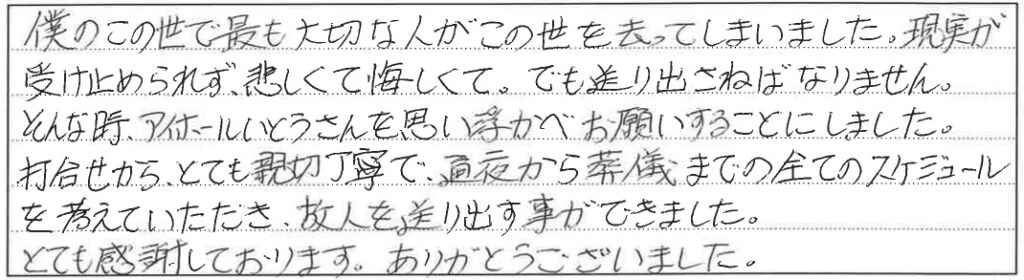 僕のこの世で最も大切な人がこの世を去ってしまいました。現実が
受け止められず、悲しくて悔しくて。でも送り出さねばなりません。
そんな時、アイホールいとうさんを思い浮かべお願いすることにしました。
打合せから、とても親切丁寧で、通夜から葬儀までの全てのスケジュール
を考えていただき、故人を送り出す事ができました。
とても感謝しております。ありがとうございました。